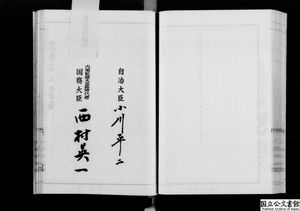 自治大臣 小川平二
内閣総理大臣臨時代理
国務大臣 西村英一
国立公文書館
National Archives of Japan